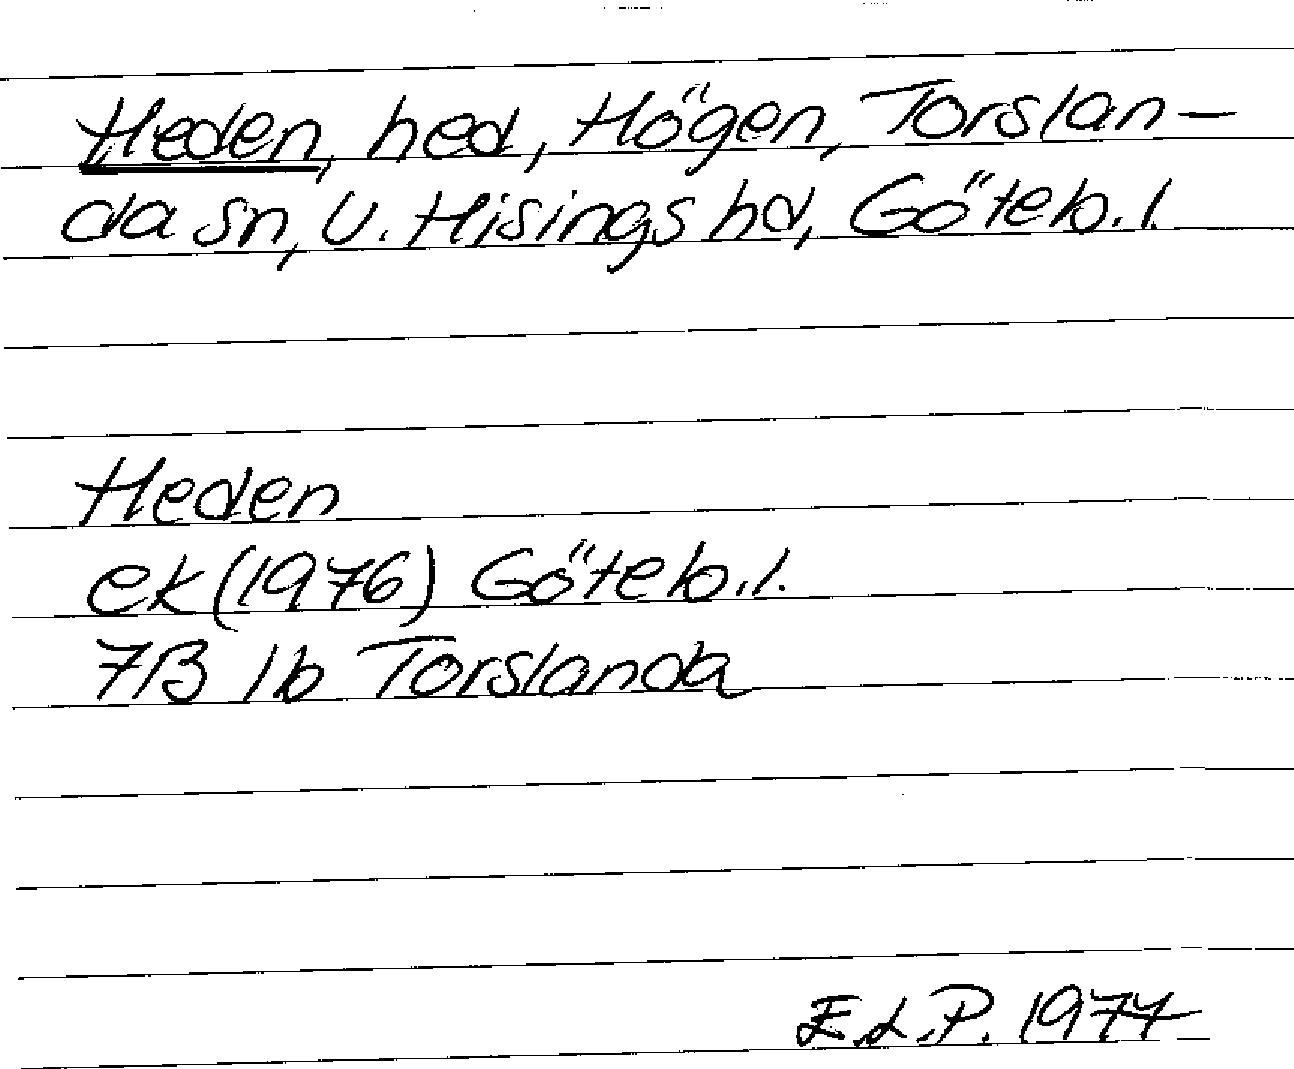 Heden, hed, Högen, Torslan-
da sn, V. Hisings hd, Göteb. l.
Heden
ek (1976) Göteb. l.
7B 1b Torslanda
E.L.P. 1977